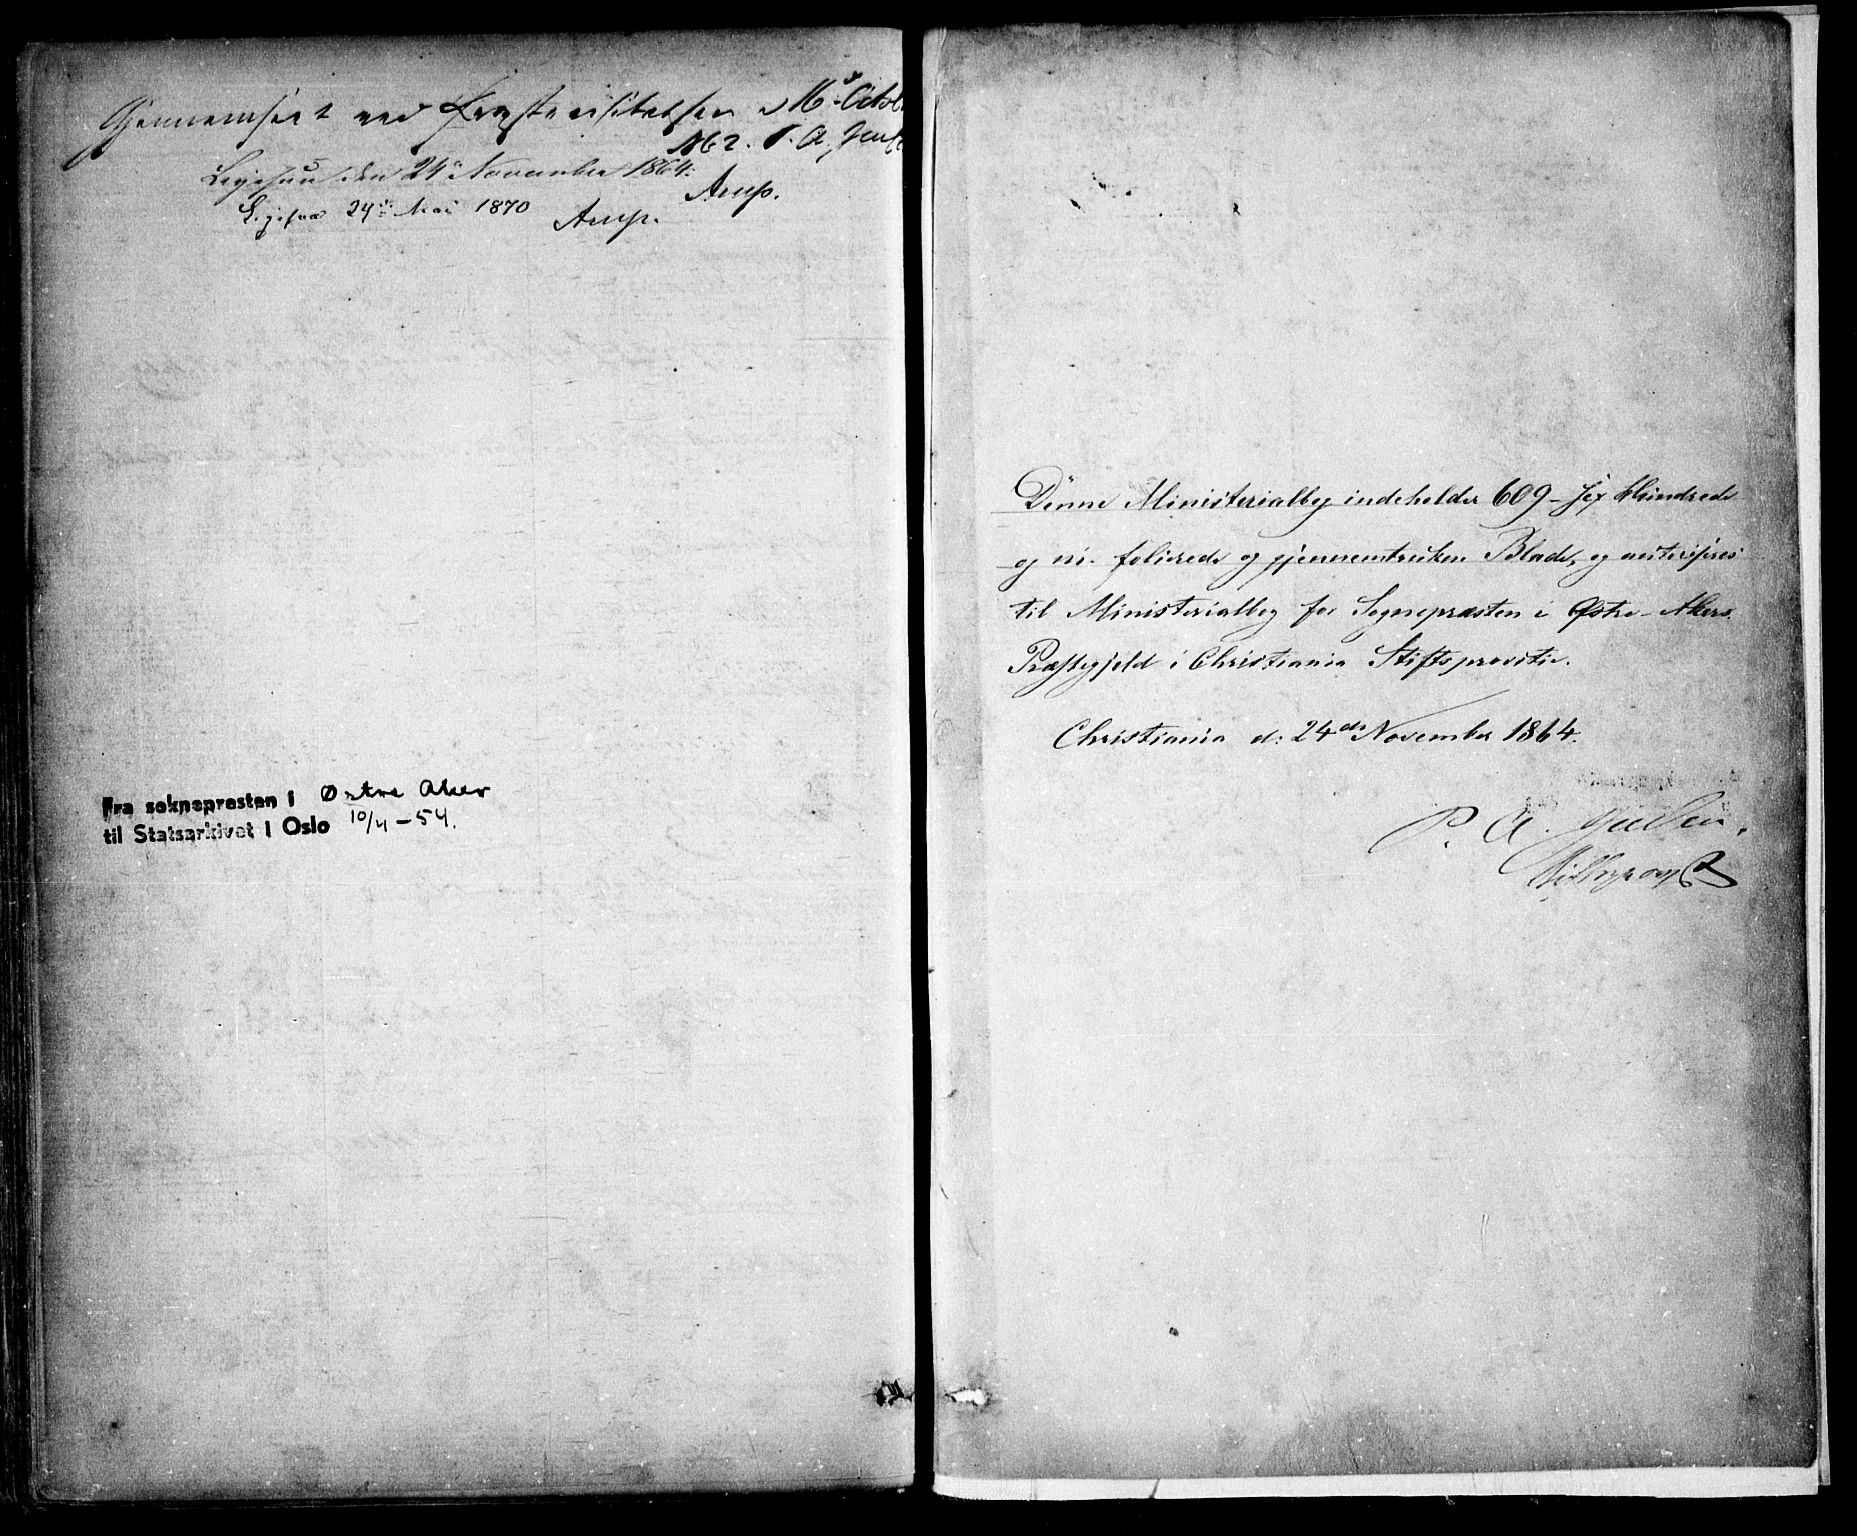 Gjennemseet ved Præstevisitatsen d. 16de Octob
P. A. Jens
Ligesaa den 24de November 1864.
Arup.
Ligesaa 24de Mai 1870 Arup.
Fra soknepresten i Østre Aker
til Statsarkivet i Oslo 10/4-54.
Denne Ministerialbog indeholder 609 - sex Hundrede
og ni - folierede og gjennemtrukken Blade, og autoriseres
til Ministerialbog for Sognepræsten i Østre-Akers
Præstegjeld i Christiania Stiftsprovsti.
Christiania d: 24de November 1864.
P. A. Jensen,
Stiftsprovst